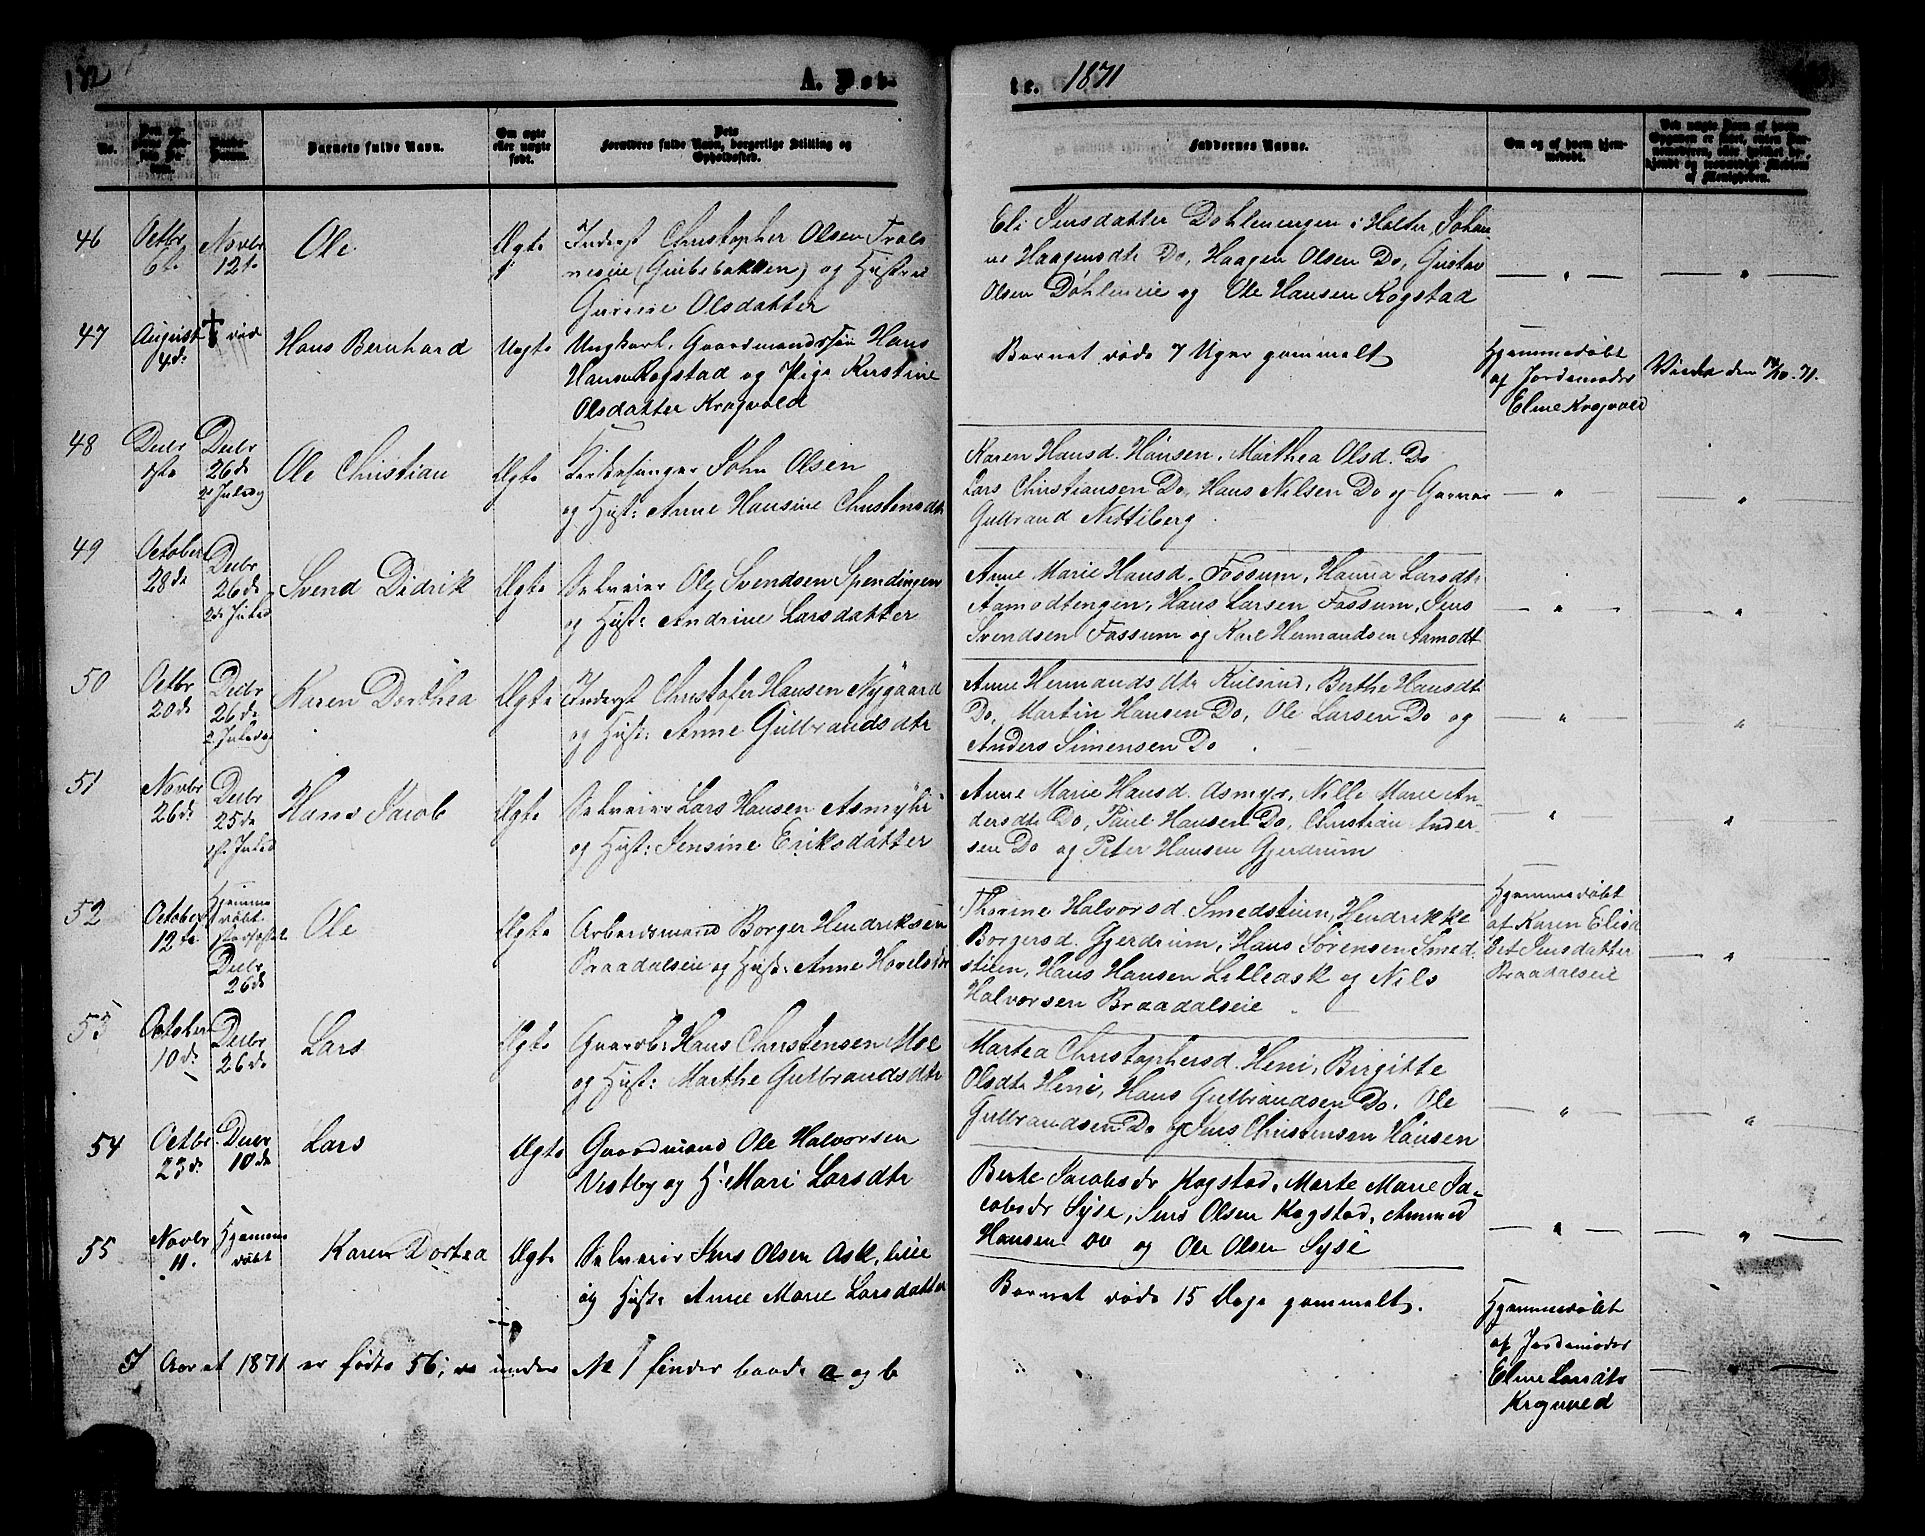 182
A. Fød-
te. 1871
No.
Barnets fulde Navn.
Om ægte eller uægte født.
Forældres fulde Navn, borgerlige Stilling og
Opholdssted.
Faddernes Navne.
Om og af hvem hjem-
medøbt.
46
Octbr
6te
Novbr
12te
Ole
Ægte
Inderst Christopher Olsen
og Hustru
Gurine Olsdatter
Eli Jensdatter i Holter, Johan-
ne Haagensdtr Do, Haagen Olsen Do, Gustav
Olsen Døhleneie og Ole Hansen Kogstad
47
August
4de
† død
Hans Bernhard
Uægte
Ungkarl, Gaardmandssøn Hans
Hansen Kogstad og Pige Kirstine
Olsdatter Krogvold
Barnet døde 7 Uger gammelt
Hjemmedøbt
af Jordemoder
Eline Krogvold
48
Decbr
1ste
Decbr
26de
2d Juledag
Ole Christian
Ægte
Kirkesanger John Olsen
og Hust: Anne Hansine Christensdtr
Karen Hansd. Hansen, Marthea Olsd. Do
Lars Christiansen Do, Hans Nilsen Do og
Gulbrand Nitteberg
49
October
28de
Decbr
26de
2de Juled
Svend Didrik
Ægte
Selveier Ole Svendsen Spendingen
og Hust: Andrine Larsdatter
Anne Marie Hansd. Fossum, Hanna Larsdtr
Aamodtengen, Hans Larsen Fossum, Jens
Svendsen Fossum og Karl Hermandsen Aamodt
50
Octbr
20de
Decbr
26de
2. Juledag
Karen Dorthea
Ægte
Inderst Christofer Hansen Nygaard
og Hust: Anne Gulbrandsdtr
Anne Hermandsdtr Kulsrud, Berthe Hansdtr
Do, Martin Hansen Do, Ole Larsen Do og
Anders Simensen Do
51
Novbr
26de
Decbr
25de
1ste Juled
Hans Jacob
Ægte
Selveier Lars Hansen Asmyhr
og Hust: Jensine Eriksdatter
Anne Marie Hansd. Asmyr, Nille Marie An-
dersdtr Do, Paul Hansen Do, Christian Ander-
sen Do og Peter Hansen Gjerdrum
52
October
12te
Hjemme
døbt
Decbr
26de
Ole
Ægte
Arbeidsmand Borger Hendriksen
Braadalseie og Hust: Anne
Thorine Halvorsd. Smedstuen, Hendrikke
Borgersd. Gjerdrum, Hans Sørensen Smed
stuen, Hans Hansen Lilleask og Nils
Halvorsen Braadalseie
Hjemmedøbt
af Karen Elisa
bet Jensdatter
Braadalseie
53
October
10de
Decbr
26de
Lars
Ægte
Gaardb: Hans Christensen Moe
og Hust: Marthe Gulbrandsdtr
Martea Christophersd. Heni, Birgitte
Olsdtr Heni, Hans Gulbrandsen Do, Ole
Gulbrandsen Do og Jens Christensen Hansen
54
Octbr
23de
Decbr
10de
Lars
Ægte
Gaardmand Ole Halvorsen
Vestby og H: Mari Larsdtr
Berte Jacobsdr Kogstad, Marte Marie Ja-
cobsdr Syse, Jens Olsen Kogstad,
Hansen Do og Ole Olsen Syse
55
Novbr
11.
Hjemme
døbt
Karen Dortea
Ægte
Selveier Jens Olsen Ask, lille
og Hust: Anne Marie Larsdatter
Barnet døde 15 Dage gammelt.
Hjemmedøbt
af Jordemoder
Eline Larsdtr
Krogvold
I Aaret 1871 er fødte 56; da under No 1 findes baade a og b